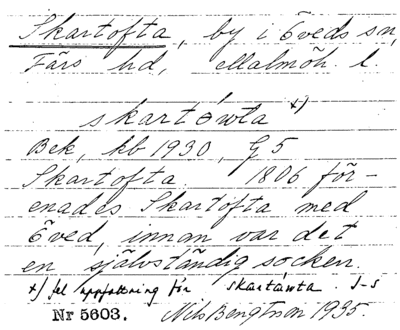 Skartofta, by i Öveds sn,
Färs hd, Malmöh. l.
skartówta x)
Bek, kb 1930, G5
Skartofta 1806 för-
enades Skartofta med
Öved, innan var det
en självständig socken.
x) fel uppfattning för skartåwta. I-S
Nr 5603. Nils Bengtson 1935.